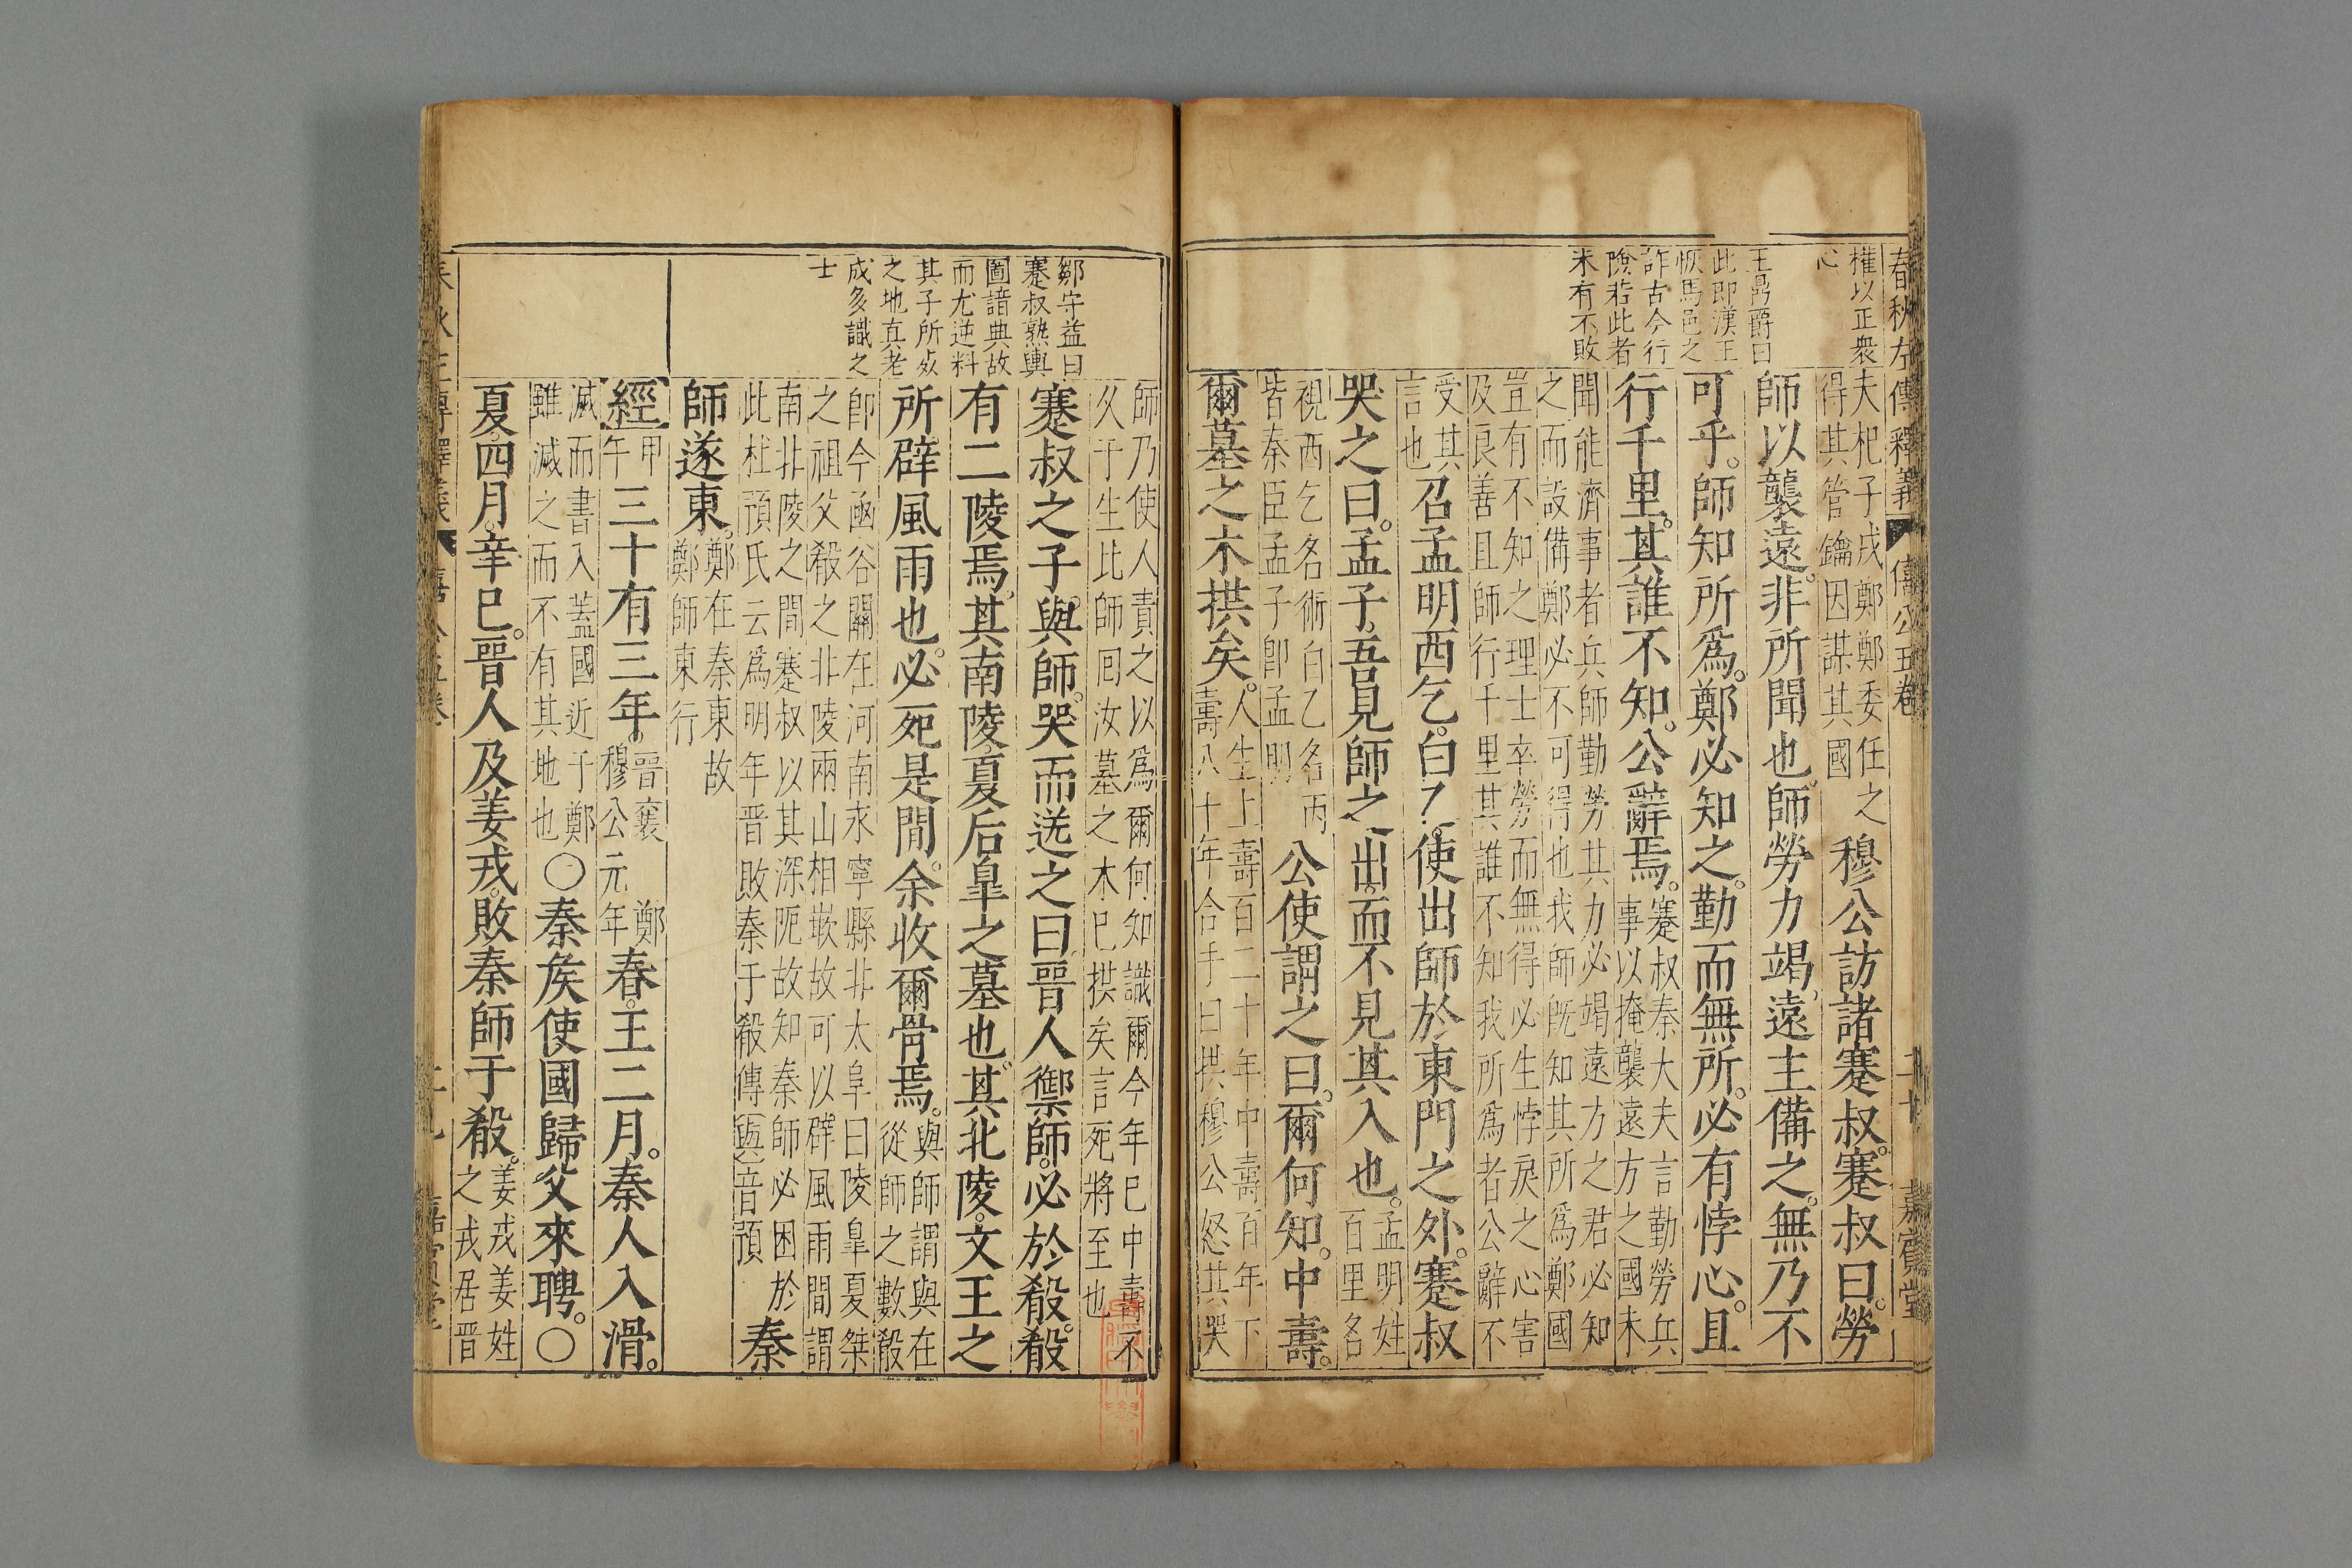 春秋左傳釋義
僖公五卷
二十
嘉賓堂
權以正衆
心
王鼎爵曰
此即漢王
恢馬邑之
詐古今行
險若此者
未有不敗
夫杞子戍鄭鄭委任之
得其管鑰因謀其國
穆公訪諸蹇叔。蹇叔曰。勞
師以襲遠。非所聞也。師勞力竭。遠主備之。無乃不
可乎。師知所爲。鄭必知之。勤而無所。必有悖心。且
行千里。其誰不知。公辭焉。
蹇叔秦大夫言勤勞兵
事以掩襲遠方之國未
聞能濟事者兵師勤勞其力必竭遠方之君必知
之而設備鄭必不可得也我師旣知其所爲鄭國
豈有不知之理士卒勞而無得必生悖戾之心害
及良善且師行千里其誰不知我所爲者公辭不
受其
言也
召孟明西乞。白乙。使出師於東門之外。蹇叔
哭之曰。孟子。吾見師之出。而不見其入也。
孟明姓
百里名
視西乞名術白乙名丙
皆秦臣孟子卽孟明
公使謂之曰。爾何知。中壽。
爾墓之木拱矣。
人生上壽百二十年中壽百年下
壽八十年合手曰拱穆公怒其哭
師乃使人責之以爲爾何知識爾今年已中壽不
久于生比師囘汝墓之木已拱矣言死將至也
鄒守益曰
蹇叔熟輿
圖諳典故
而尤逆料
其子所死
之地真老
成多識之
士
蹇叔之子。與師。哭而送之曰。晉人禦師。必於殽。殽
有二陵焉。其南陵。夏后皐之墓也。其北陵。文王之
所辟風雨也。必死是間。余收爾骨焉。
與師謂與在
從師之數殽
卽今函谷關在河南永寧縣非太阜曰陵皐夏桀
之祖父殽之北陵兩山相嶔故可以辟風雨間謂
南北陵之間蹇叔以其深阨故知秦師必困於
此杜預氏云爲明年晋敗秦于殽傳與音預
秦
師遂東。
鄭在秦東故
鄭師東行
經
甲
午
三十有三年。
晉襄
穆公元
鄭
年
春。王二月。秦人入滑。
滅而書入蓋國近于鄭
雖滅之而不有其地也
〇秦矦使國歸父來聘。〇
夏。四月。辛巳。晉人及姜戎。敗秦師于殽。
姜戎姜姓
之戎居晋